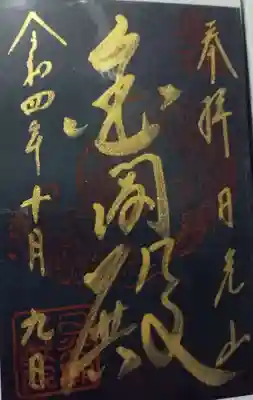 奉拝 日光山
金閣殿
令和四年十月九日